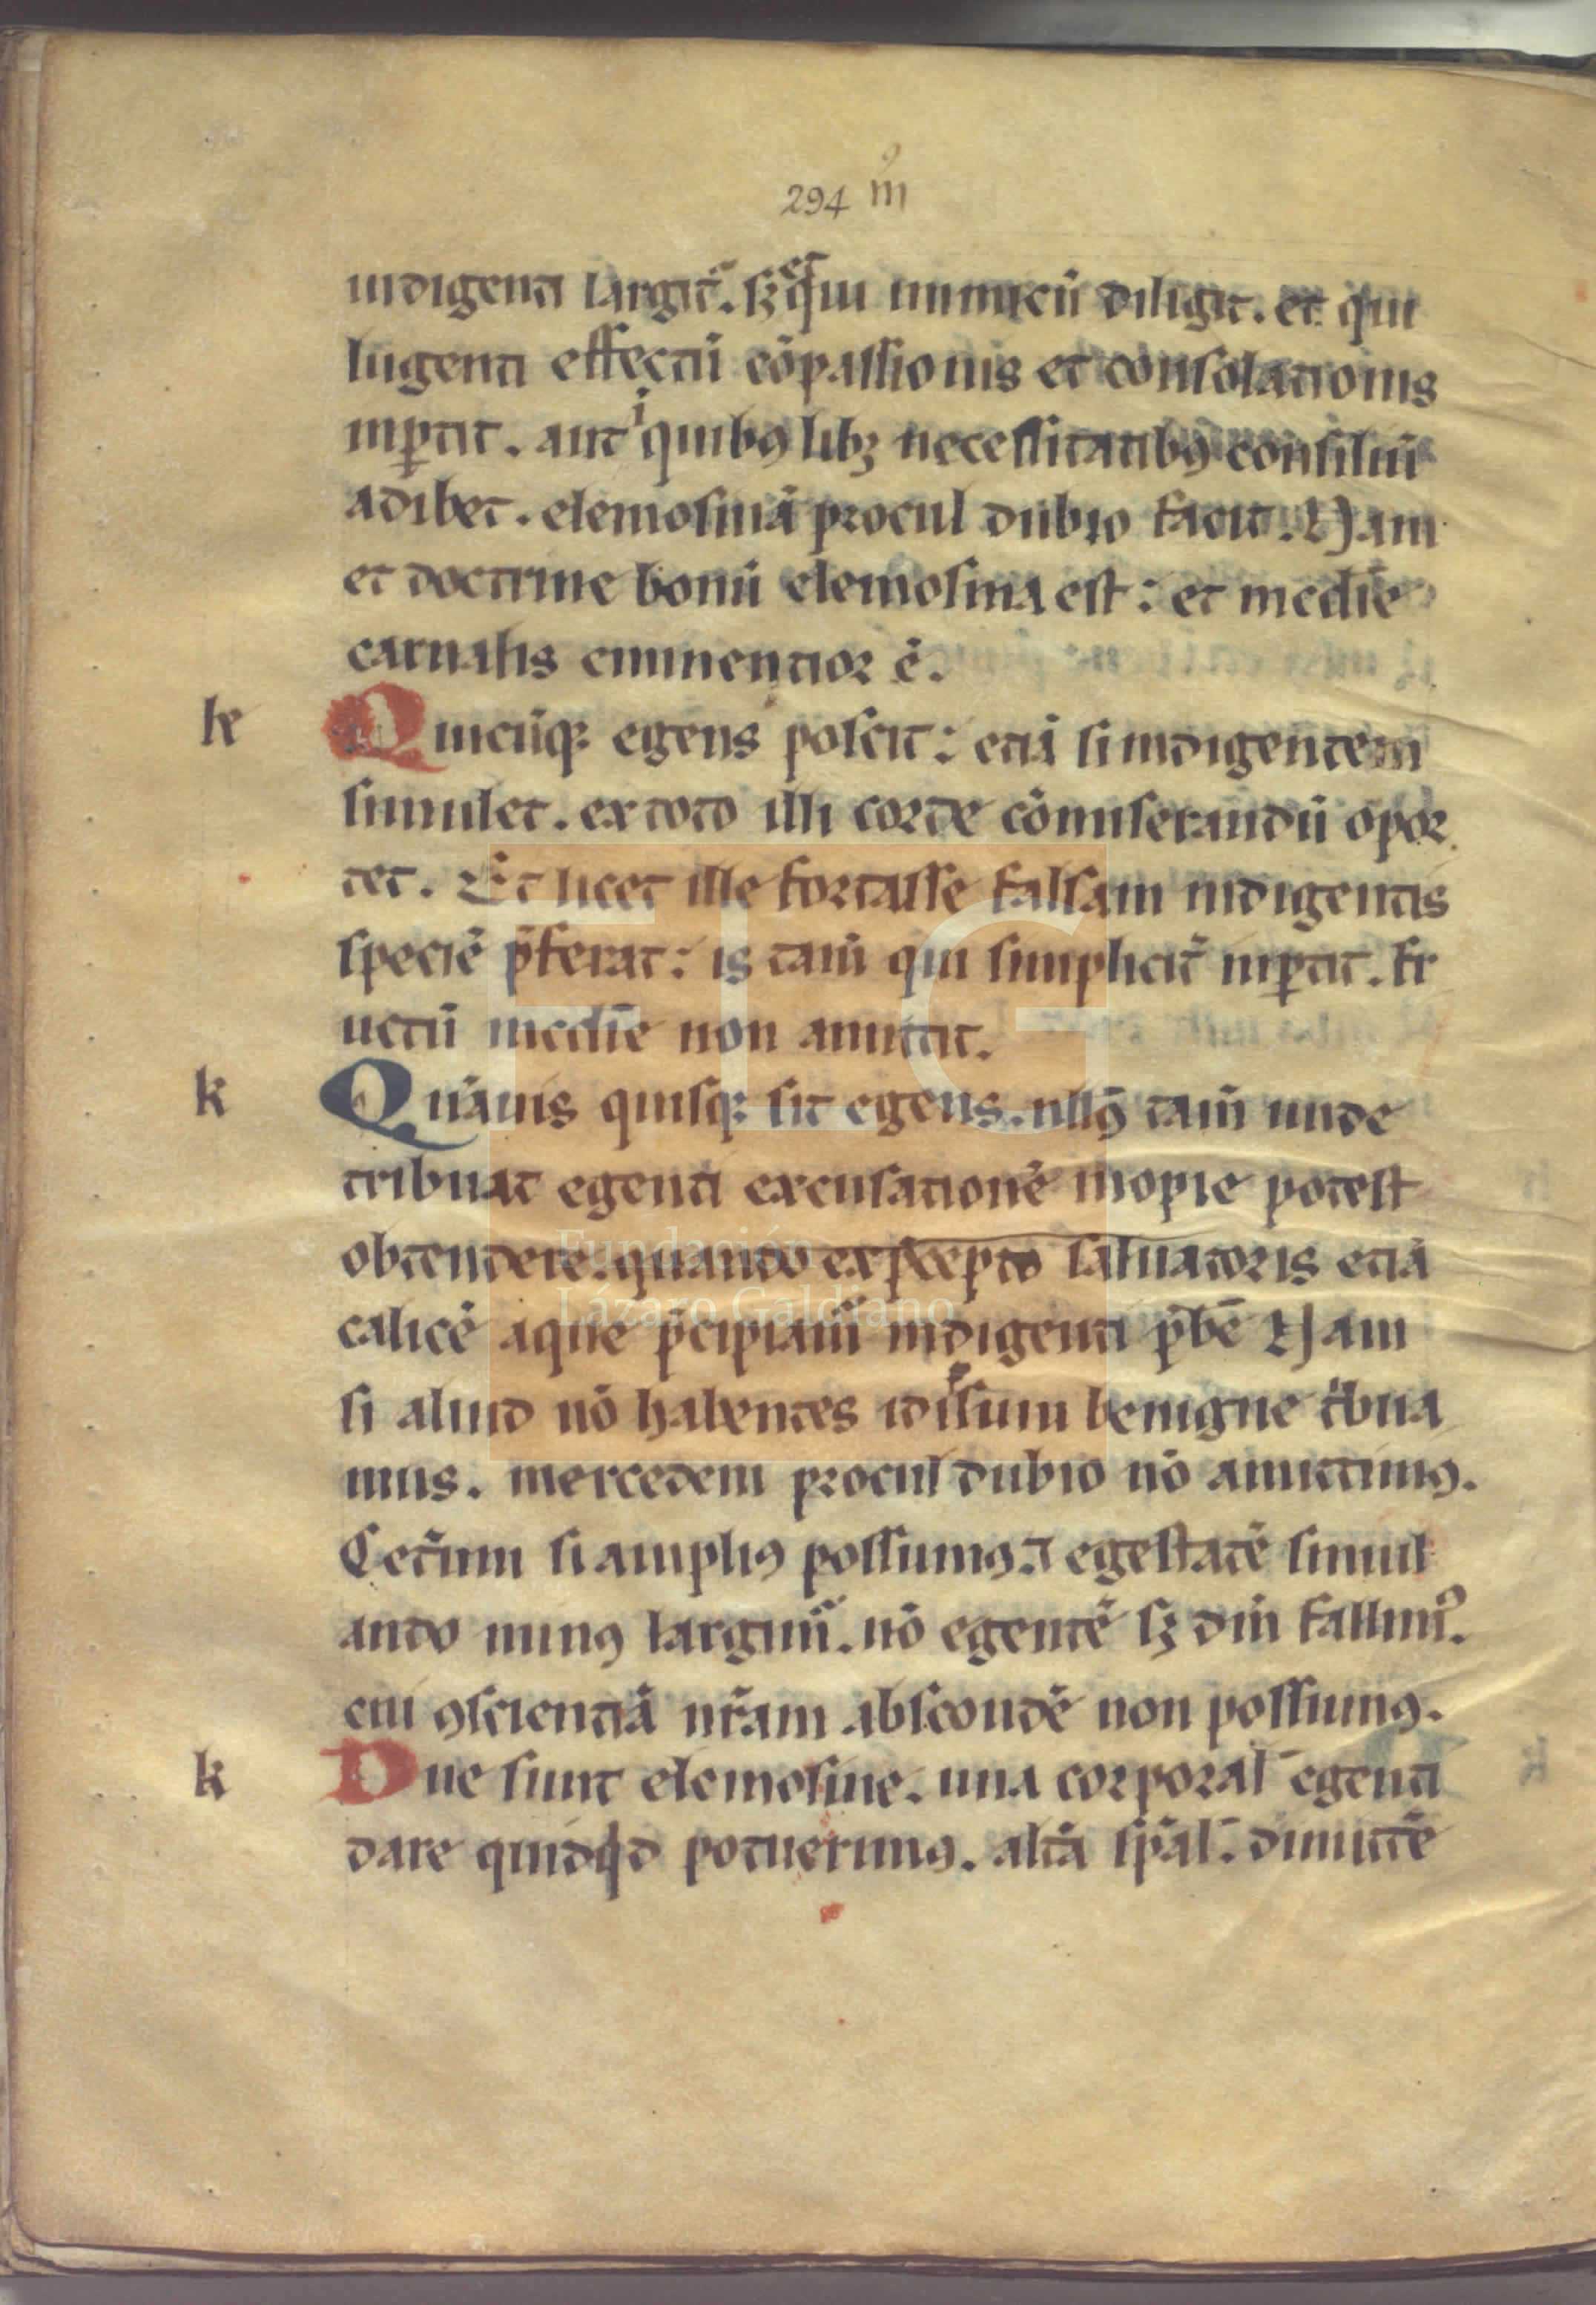 294 m̊
indigenti largit᷑. sꝫ et qui inimicū diligit. et qui
lugenti effectū cōpassionis et consolationis
inꝑtit. aut i quibꝯ libꝫ necessitatibꝯ consiliū
adibet. elemosinā procul dubio facit. Nam
et doctrine bonū elemosina est: et medīe
carnalis eminentior ē.
k Quicūqꝫ egens poscit: etiā si indigentem
simulet. ex toto illi corde cōmiserandū opor
tet. Et licet ille fortasse falsam indigentis
speciē p̄ferat: is tam̄ qui simplicit᷑ inꝑtit. fr
uctū medīe non amittit.
k Quāuis quisqꝫ sit egens. nllꝯ tam̄ unde
tribuat egenti excusationē inopie potest
obtendere. quando ex p̄cepto saluatoris etiā
calicē aque p̄cipiam᷑ indigenti p̄bē Nam
si aliud nō habentes id ipsum benigne tⁱbua
mus. mercedem procul dubio nō amittimꝯ.
Cet᷑um si ampliꝯ possumꝯ. ⁊ egestatē simul
ando minꝯ largim᷑. nō egentē sꝫ dm̄ fallimꝰ.
cui ꝯscientiā nr̄am abscondē non possumꝯ.
k Due sunt elemosine. una corporal̄ egenti
dare quidq̄d potuerimꝯ. altā sp̄al̄. dimittē
FLG
Fundación
Lázaro Galdiano